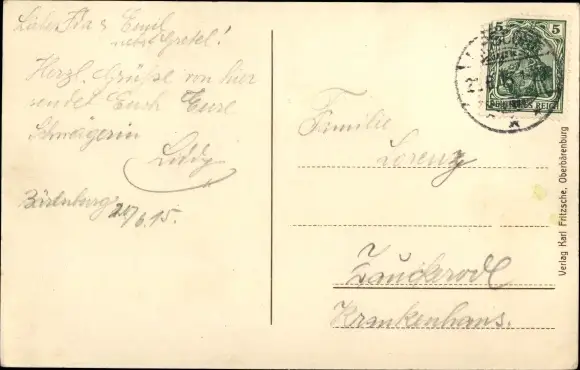 Liebe Ida & Emil
nebst Gretel!
Herzl. Grüße von hier
sendet Euch Eure
Schwägerin
Liddy
Bärenburg 20/6.15.
5
5
REICH
Familie
Lorenz
Zauckerode
Krankenhaus.
Verlag Karl Fritzsche, Oberbärenburg